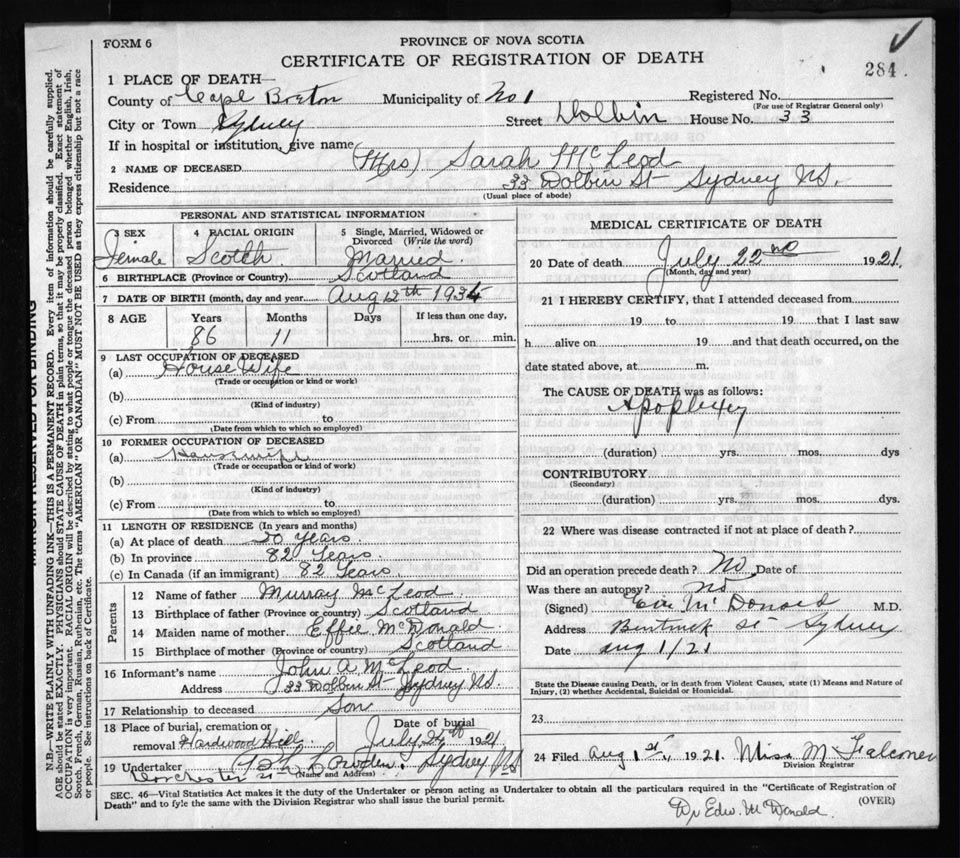 FORM 6
PROVINCE OF NOVA SCOTIA
CERTIFICATE OF REGISTRATION OF DEATH
284
1 PLACE OF DEATH—
County of Cape Breton Municipality of No 1 Registered No.
(For use of Registrar General only)
City or Town Sydney Street Dolbin House No. 33
If in hospital or institution, give name
2 NAME OF DECEASED (Mrs) Sarah McLeod
Residence 33 Dolbin St Sydney NS.
(Usual place of abode)
PERSONAL AND STATISTICAL INFORMATION
3 SEX 4 RACIAL ORIGIN 5 Single, Married, Widowed or
Divorced (Write the word)
Female Scotch Married
6 BIRTHPLACE (Province or Country) Scotland
7 DATE OF BIRTH (month, day and year) Aug 12th 1934
8 AGE Years Months Days If less than one day,
86 11 hrs. or min.
9 LAST OCCUPATION OF DECEASED
(a) House Wife
(Trade or occupation or kind of work)
(b)
(Kind of industry)
(c) From to
(Date from which to which so employed)
10 FORMER OCCUPATION OF DECEASED
(a) Housewife
(Trade or occupation or kind of work)
(b)
(Kind of industry)
(c) From to
(Date from which to which so employed)
11 LENGTH OF RESIDENCE (In years and months)
(a) At place of death 50 Years
(b) In province 82 Years.
(c) In Canada (if an immigrant) 82 Years.
Parents
12 Name of father Murray McLeod
13 Birthplace of father (Province or country) Scotland
14 Maiden name of mother Effie McDonald
15 Birthplace of mother (Province or country) Scotland
16 Informant's name John A McLeod
Address 33 Dolbin St Sydney NS.
17 Relationship to deceased Son
18 Place of burial, cremation or Date of burial
removal Hardwood Hill July 24th 1921
19 Undertaker Sydney NS
Dorchester St (Name and Address)
MEDICAL CERTIFICATE OF DEATH
20 Date of death July 22nd 1921.
(Month, day and year)
21 I HEREBY CERTIFY, that I attended deceased from
19 to 19 that I last saw
h alive on 19 and that death occurred, on the
date stated above, at m.
The CAUSE OF DEATH was as follows:
Apoplexy
(duration) yrs. mos. dys
CONTRIBUTORY
(Secondary)
(duration) yrs. mos. dys.
22 Where was disease contracted if not at place of death?
Did an operation precede death? No Date of
Was there an autopsy? No
(Signed) McDonald M.D.
Address St Sydney
Date Aug 1/21
State the Disease causing Death, or in death from Violent Causes, state (1) Means and Nature of
Injury, (2) whether Accidental, Suicidal or Homicidal.
23
24 Filed Aug 1st, 1921. Miss M Falconer
Division Registrar
SEC. 46—Vital Statistics Act makes it the duty of the Undertaker or person acting as Undertaker to obtain all the particulars required in the "Certificate of Registration of
Death" and to fyle the same with the Division Registrar who shall issue the burial permit. (OVER)
Dr Edw. McDonald.
MARGIN RESERVED FOR BINDING
N.B.—WRITE PLAINLY WITH UNFADING INK—THIS IS A PERMANENT RECORD. Every item of information should be carefully supplied.
AGE should be stated EXACTLY. PHYSICIANS should STATE CAUSE OF DEATH in plain terms, so that it may be properly classified. Exact statement of
OCCUPATION is very important. RACIAL ORIGIN will be described by stating to what people or tongue the deceased person belonged whether English, Irish,
Scotch, French, German, Russian, Ruthenian, etc. The terms "AMERICAN" OR "CANADIAN" MUST NOT BE USED as they express citizenship but not a race
or people. See instructions on back of Certificate.